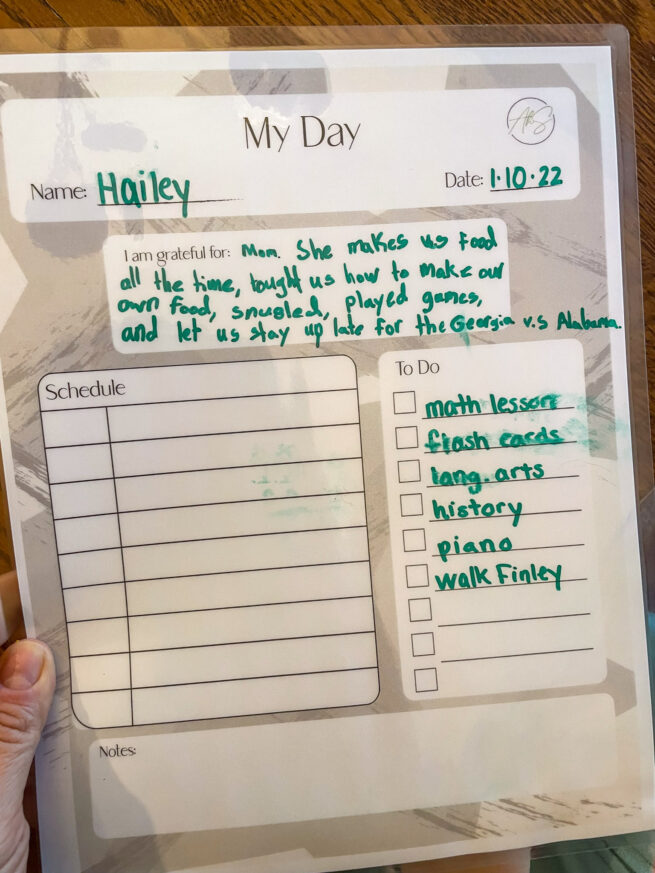 My Day
Name: Hailey
Date: 1·10·22
I am grateful for: Mom. She makes us food
all the time, tought us how to make our
own food, snugled, played games,
and let us stay up late for the Georgia v.s Alabama.
Schedule
To Do
math lesson
flash cards
lang. arts
history
piano
walk Finley
Notes: